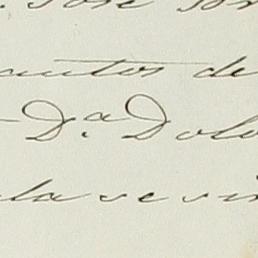 José
autos de
D.ª Dolo
la se vi